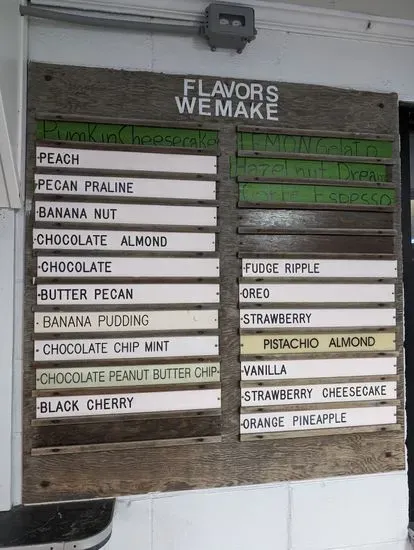 FLAVORS
WE MAKE
PumKin Cheesecake
PEACH
PECAN PRALINE
BANANA NUT
CHOCOLATE ALMOND
CHOCOLATE
BUTTER PECAN
BANANA PUDDING
CHOCOLATE CHIP MINT
CHOCOLATE PEANUT BUTTER CHIP
BLACK CHERRY
LEMON Gelato
Hazelnut Dream
Caffe Espresso
FUDGE RIPPLE
OREO
STRAWBERRY
PISTACHIO ALMOND
VANILLA
STRAWBERRY CHEESECAKE
ORANGE PINEAPPLE